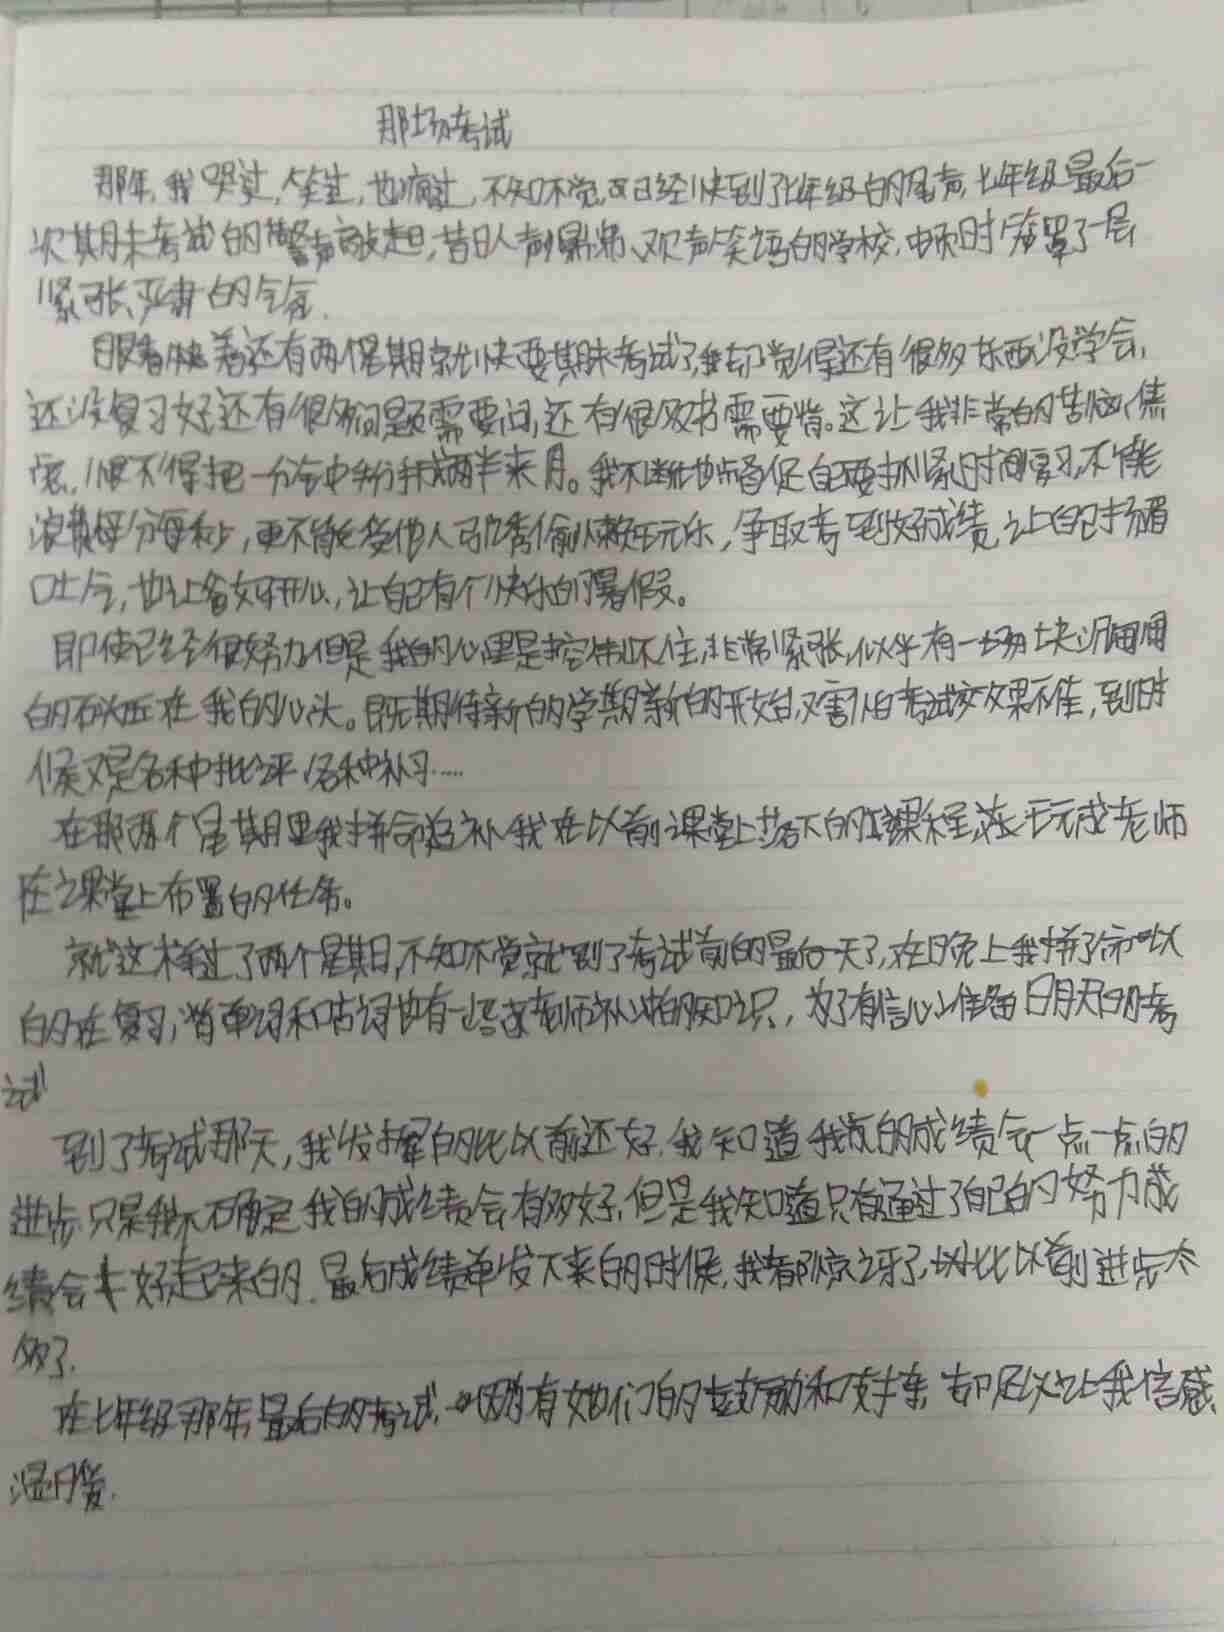 那场考试
那年,我哭过,笑过,也痛过,不知不觉,已经快到了七年级的尾声,七年级最后一
次期末考试的警声敲起,昔日人声鼎沸、欢声笑语的学校,顿时笼罩了一层
紧张、严肃的气氛.
眼看快着还有两个星期就快要期末考试了,我却觉得还有很多东西没学会,
还没复习好,还有很多问题需要问,还有很多书需要背。这让我非常的苦恼、焦
虑,恨不得把一分钟掰成两半来用。我不断地督促自己要抓紧时间复习,不能
浪费每分每秒,更不能受他人引诱偷懒玩乐,争取考到好成绩,让自己扬眉
吐气,也让爸妈开心,让自己有个快乐的暑假。
即使已经很努力,但是我的心里是控制不住,非常紧张,似乎有一块沉甸甸
的石头压在我的心头。既期待新的学期新的开始,又害怕考试效果不佳,到时
候又是各种批评、各种补习.....
在那两个星期里我拼命追补我在以前课堂上落下的课程,完成老师
在课堂上布置的任务。
就这样过了两个星期,不知不觉就到了考试前的最后一天了,在晚上我拼了命似
的在复习,背单词和古词也有一些老师补的知识,为了有信心准备明天的考
试
到了考试那天,我发挥的比以前还好.我知道我的成绩会一点一点的
进步,只是我不确定我的成绩会有多好,但是我知道只有通过了自己的努力成
绩会好起来的.最后成绩单发下来的时候,我都惊讶了,比以前进步太
多了.
在七年级那年最后的考试,因为有她们的鼓励和支持,却足以让我倍感
温暖.